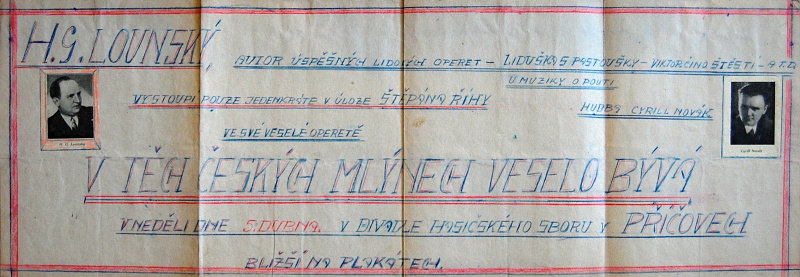 H.G. LOUNSKÝ
AUTOR ÚSPĚŠNÝCH LIDOVÝCH OPERET - LIDUŠKA S PASTOUŠKY - VIKTORČINO ŠTĚSTÍ - A T.D.
U MUZIKY O POUTI
VYSTOUPÍ POUZE JEDENKRÁTE V ÚLOZE ŠTĚPÁNA ŘÍHY
HUDBA CYRILL NOVÁK
VE SVÉ VESELÉ OPERETĚ
H. G. Lounský
Cyrill Novák
V TĚCH ČESKÝCH MLÝNECH VESELO BÝVÁ
V NEDĚLI DNE 5. DUBNA. V DIVADLE HASIČSKÉHO SBORU V PŘÍČOVECH
BLIŽŠÍ NA PLAKÁTECH.